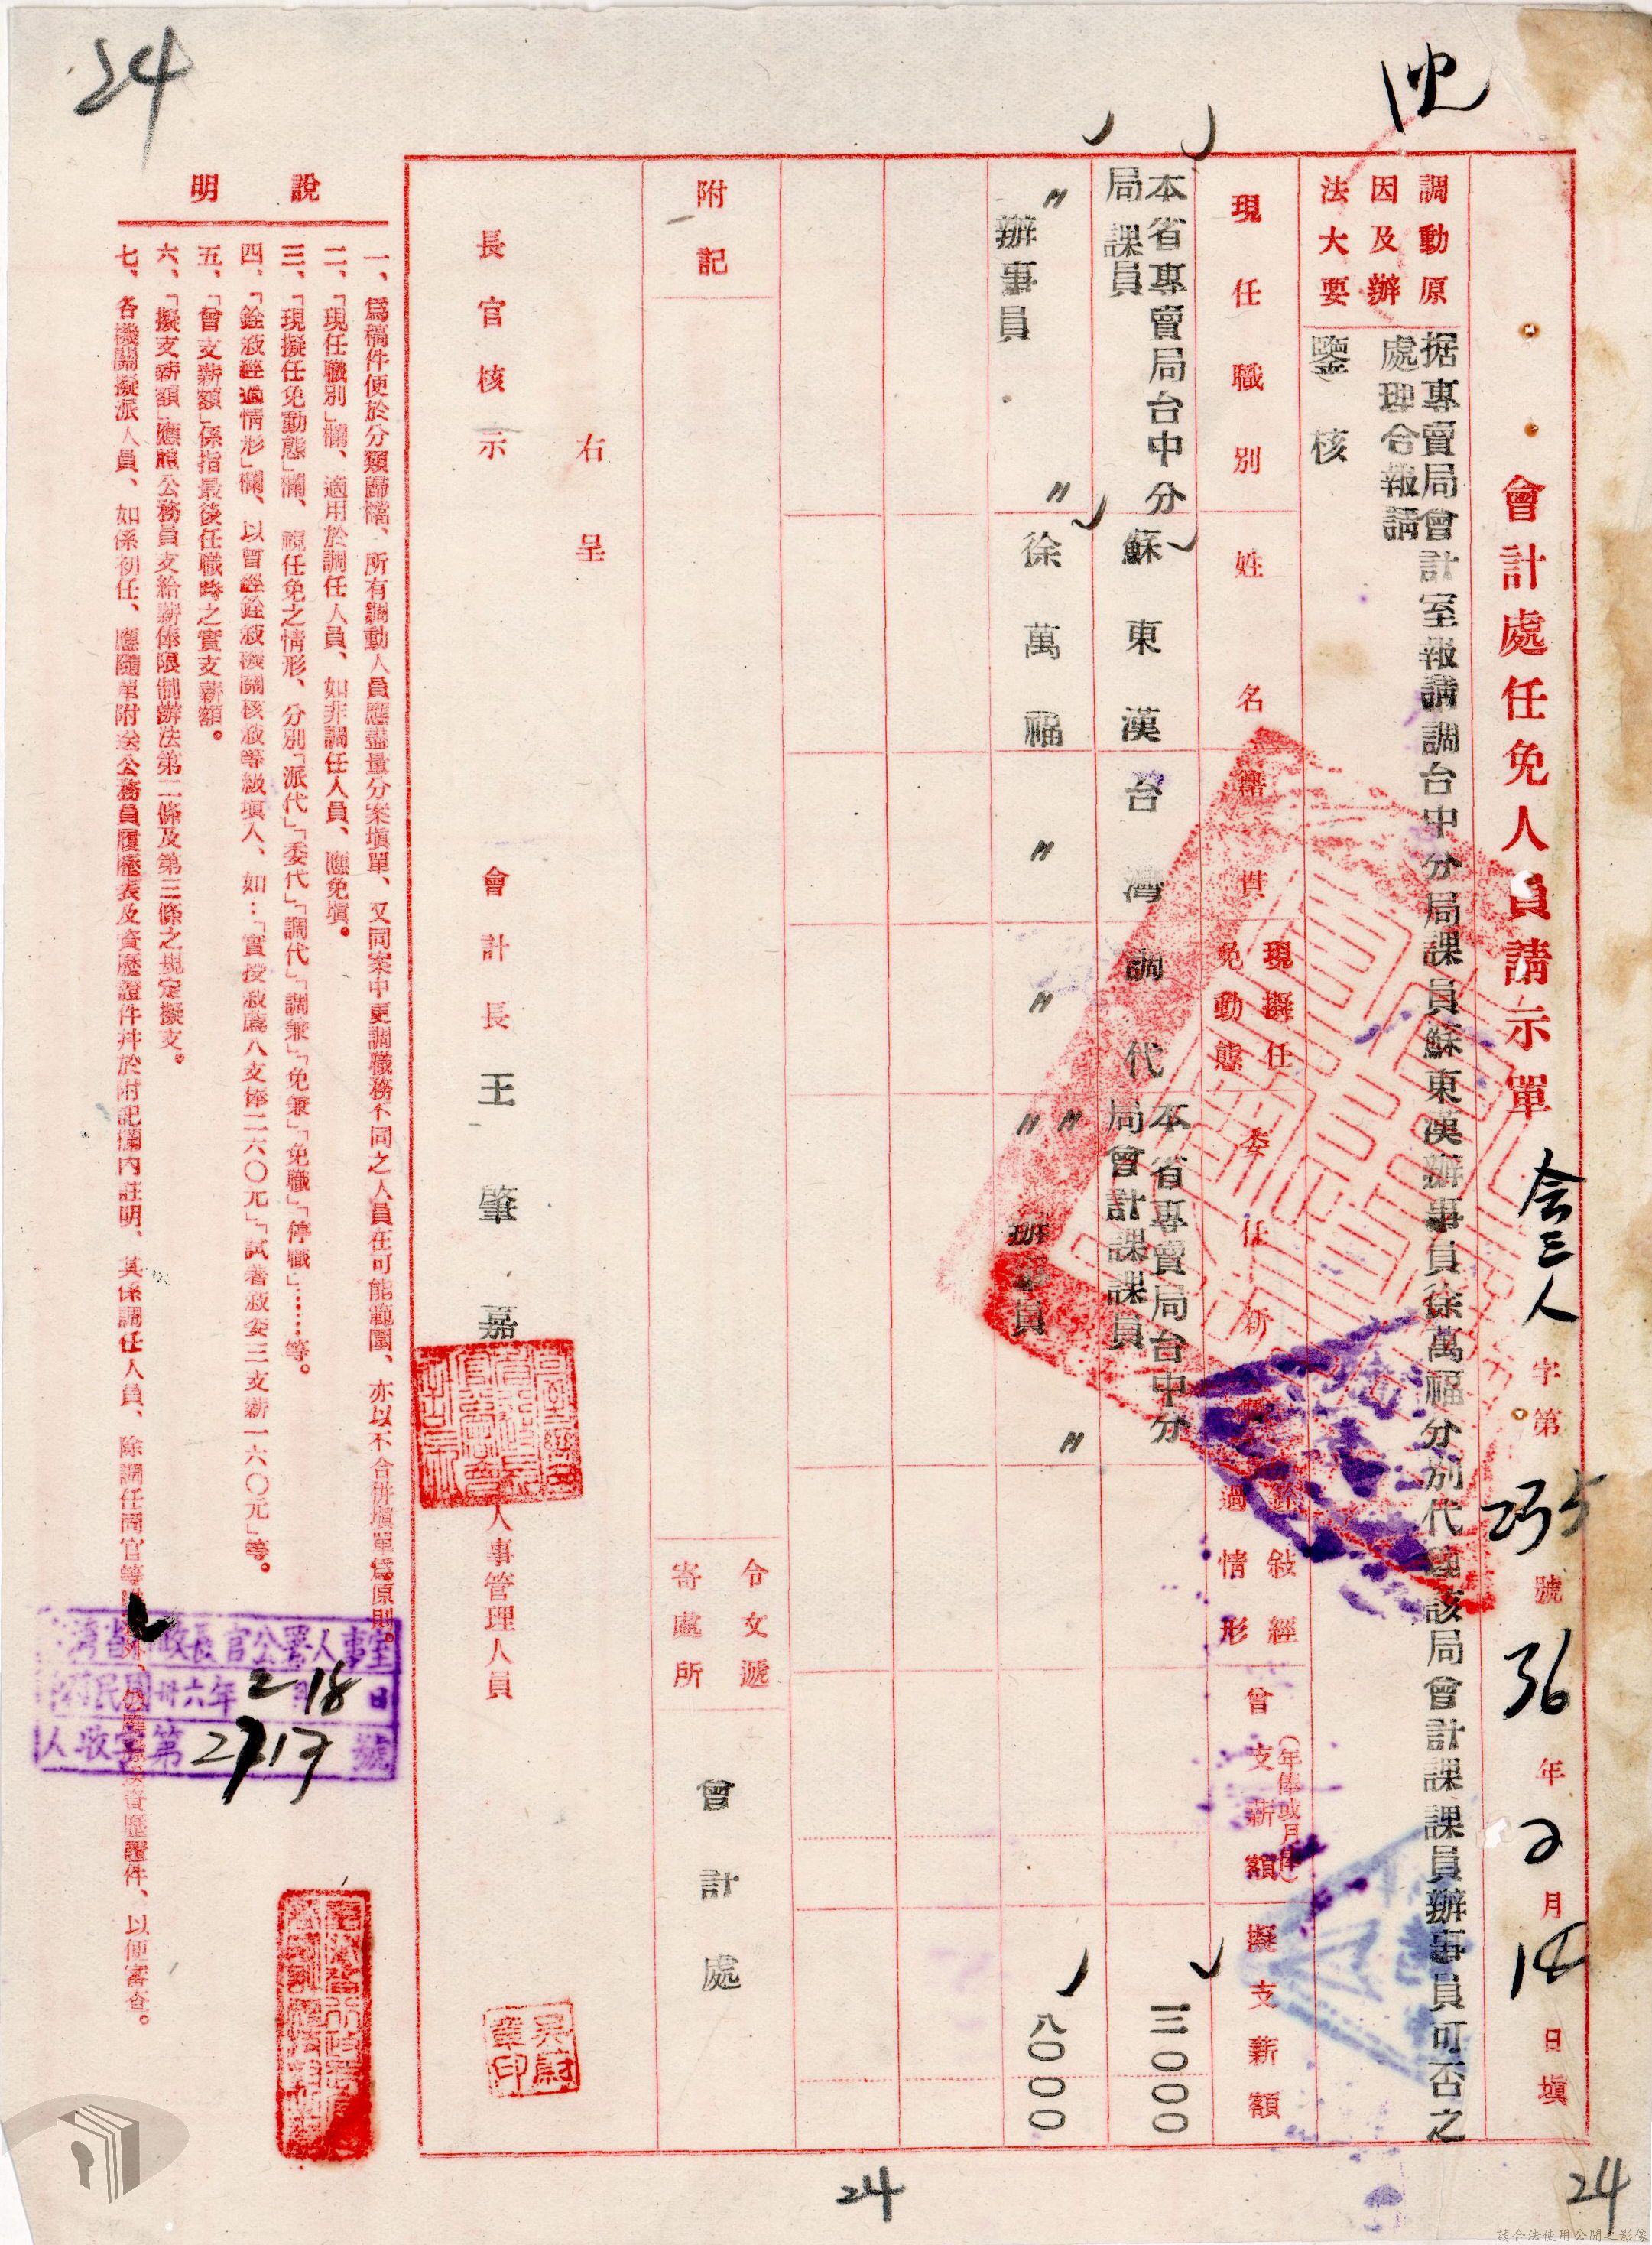 24
會計處任免人員請示單
会三人字第235號36年2月18日填
調動原因及辦法大要
据專賣局會計室報請調台中分局課員蘇東漢辦事員徐萬福分別代理該局會計課課員辦事員可否之
處理合報請
鑒核
現任職別
姓名
籍貫
現擬任免動態
委任新
銓敍經過情形
曾支薪額
(年俸或月俸)
擬支薪額
本省專賣局台中分局課員
蘇東漢
台灣
調代
本省專賣局台中分局會計課課員
〃辦事員〃
徐萬福
〃
〃
〃〃辦事員〃
八〇〇〇
附記
令文遞寄處所
會計處
右呈
長官核示
會計長王肇嘉
人事管理人員
說明
一、爲稿件便於分類歸檔、所有調動人員應盡量分案塡單、又同案中更調職務不同之人員在可能範圍、亦以不合併塡單爲原則。
二、「現任職別」欄、適用於調任人員、如非調任人員、應免塡。
三、「現擬任免動態」欄、視任免之情形、分別「派代」「委代」「調代」「調兼」「免兼」「免職」「停職」……等。
四、「銓敍經過情形」欄、以曾經銓敍機關核敍等級塡入、如：「實授敍薦八支俸二六〇元」「試署敍委三支薪一六〇元」等。
五、「曾支薪額」係指最後任職時之實支薪額。
六、「擬支薪額」應照公務員支給薪俸限制辦法第二條及第三條之規定擬支。
七、各機關擬派人員、如係初任、應隨單附送公務員履歷表及資歷證件幷於附記欄內註明、其係調任人員、除調任同官等職外、仍應資歷證件、以便審查。
灣省行政長官公署人事室
民國卅六年2月18日
人收字第2717號
24
24
請合法使用公開之影像